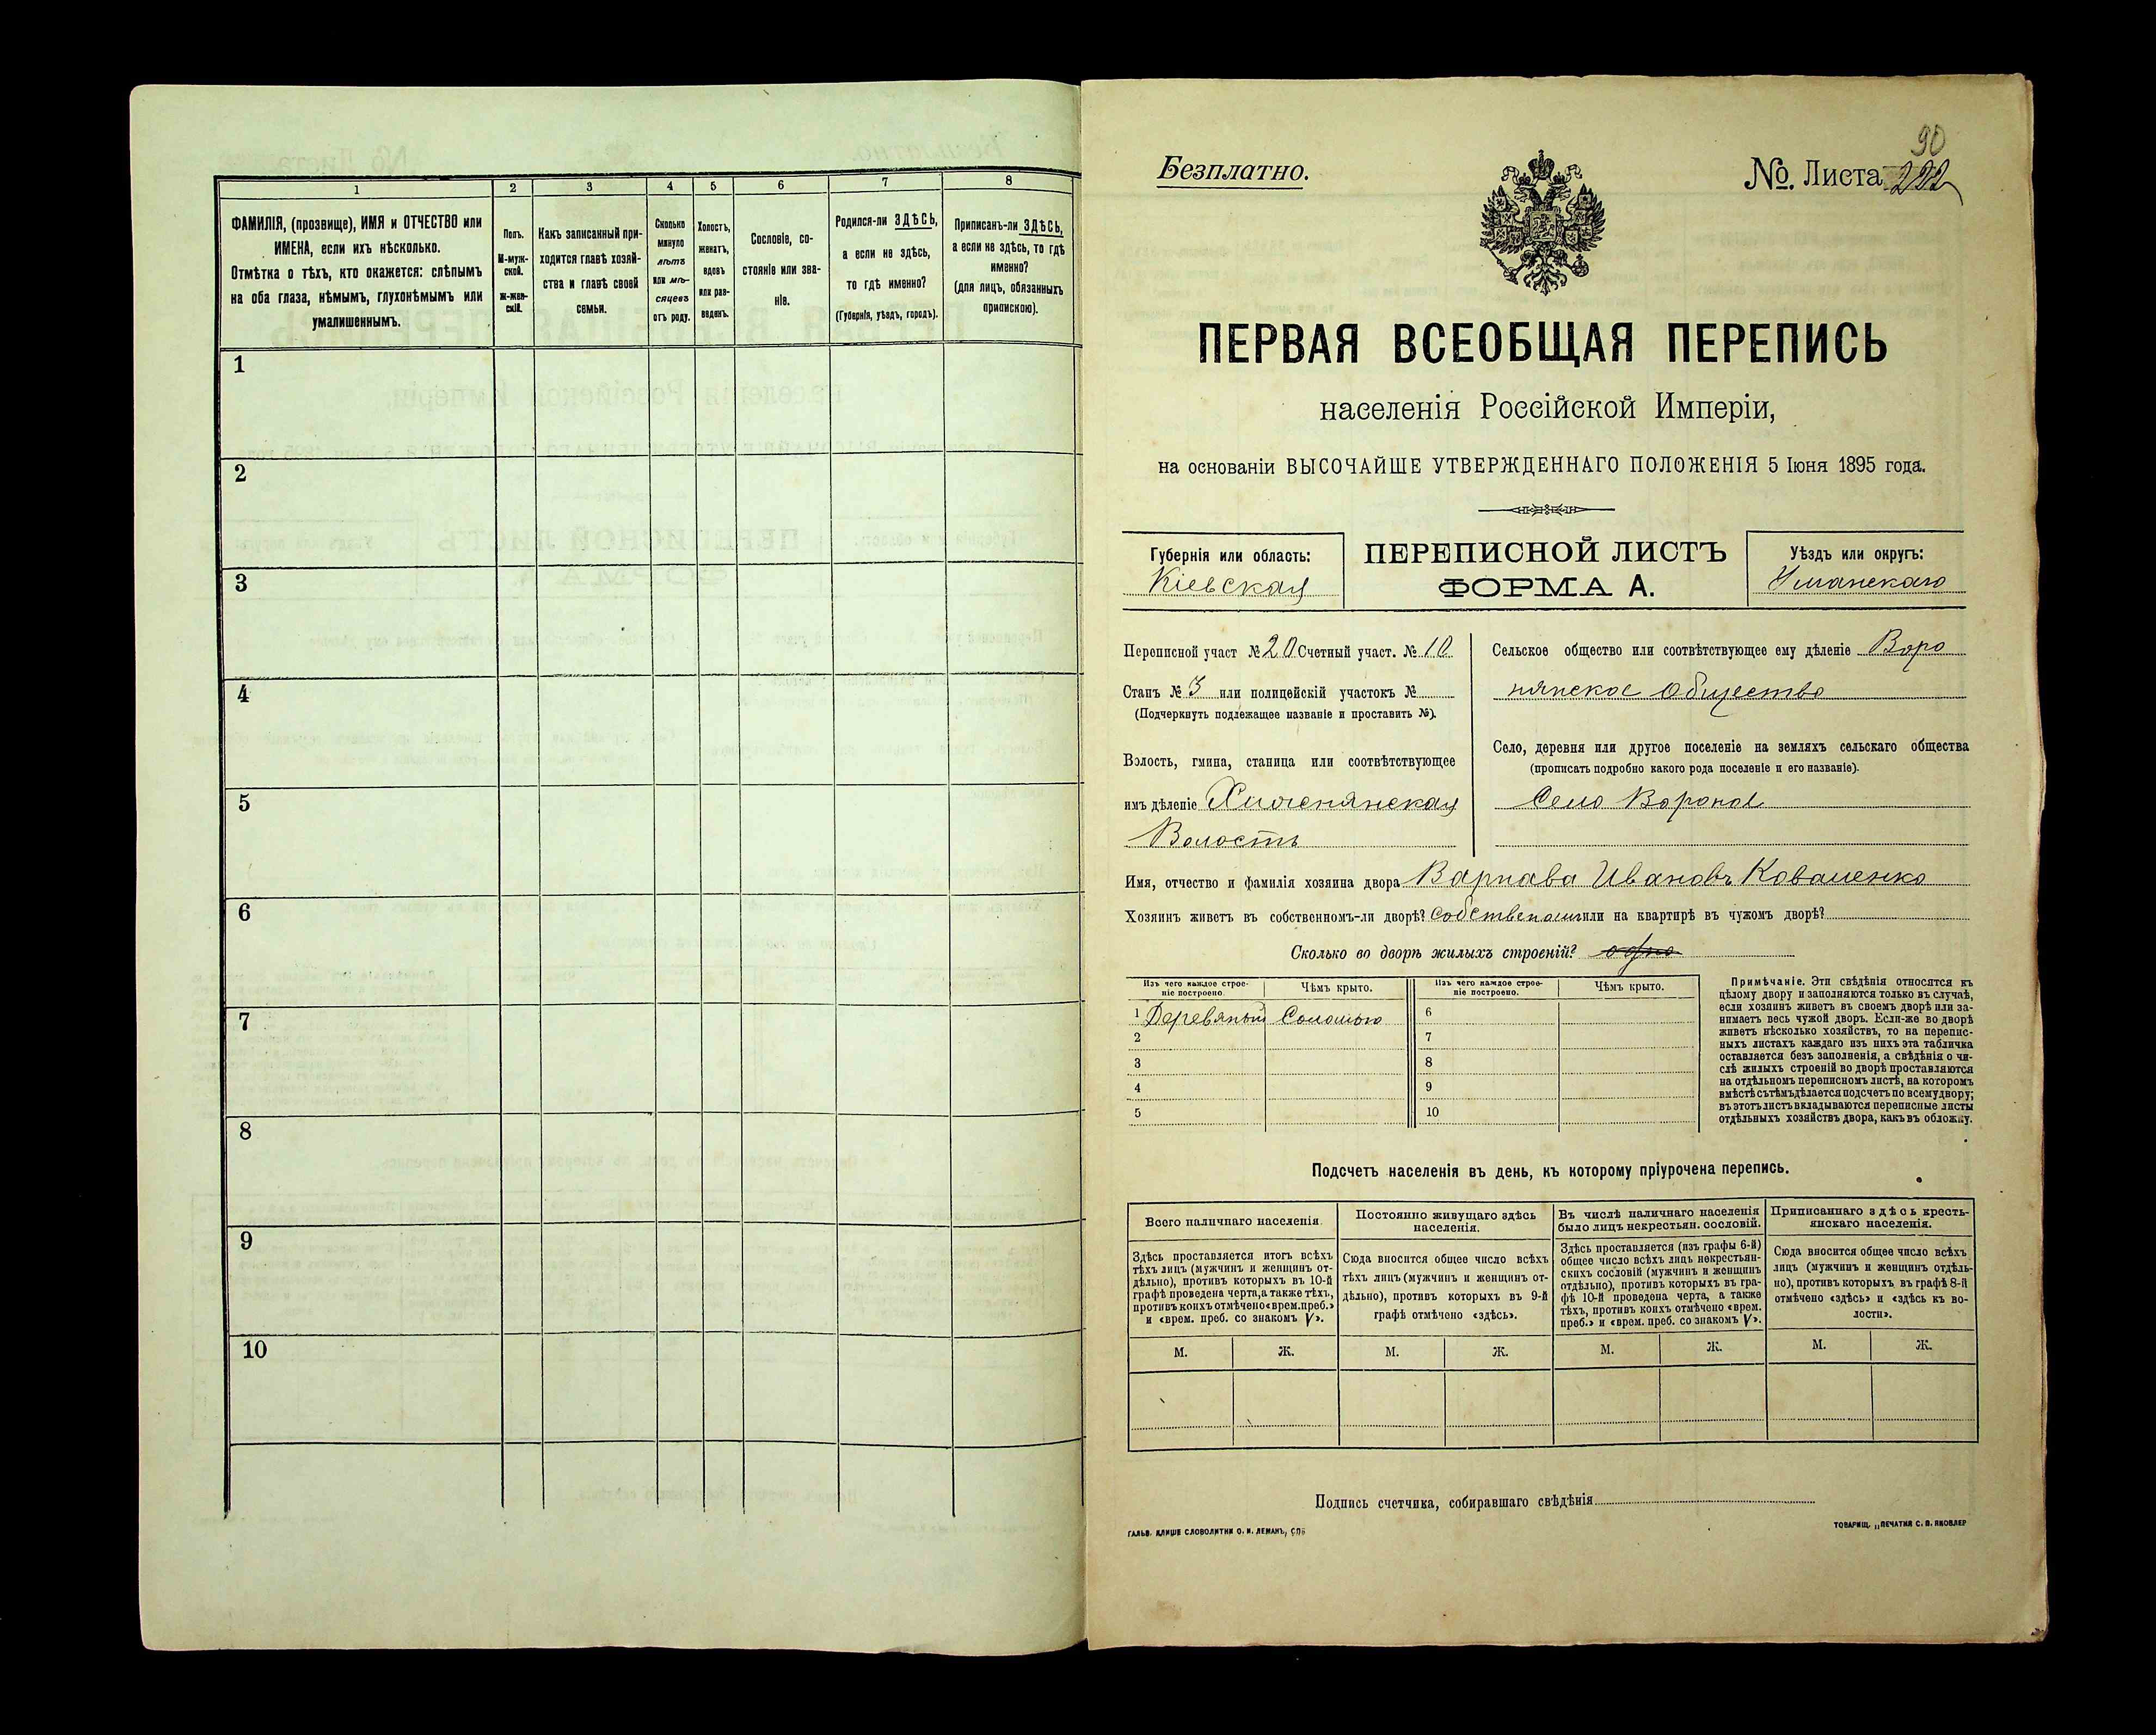 1 2 3 4 5 6 7 8
ФАМИЛІЯ, (прозвище), ИМЯ и ОТЧЕСТВО или
ИМЕНА, если ихъ нѣсколько.
Отмѣтка о тѣхъ, кто окажется: слѣпымъ
на оба глаза, нѣмымъ, глухонѣмымъ или
умалишеннымъ.
Полъ.
М-муж-
ской.
Ж-жен-
скій.
Какъ записанный при-
ходится главѣ хозяй-
ства и главѣ своей
семьи.
Сколько
минуло
лѣтъ
или мѣ-
сяцевъ
отъ роду.
Холостъ,
женатъ,
вдовъ
или раз-
веденъ.
Сословіе, со-
стояніе или зва-
ніе.
Родился-ли ЗДѢСЬ,
а если не здѣсь,
то гдѣ именно?
(Губернія, уѣздъ, городъ).
Приписанъ-ли ЗДѢСЬ,
а если не здѣсь, то гдѣ
именно?
(для лицъ, обязанныхъ
припискою).
1
2
3
4
5
6
7
8
9
10
90
Безплатно.
№. Листа 222
ПЕРВАЯ ВСЕОБЩАЯ ПЕРЕПИСЬ
населенія Россійской Имперіи,
на основаніи ВЫСОЧАЙШЕ УТВЕРЖДЕННАГО ПОЛОЖЕНІЯ 5 Іюня 1895 года.
Губернія или область:
Кіевская
ПЕРЕПИСНОЙ ЛИСТЪ
ФОРМА А.
Уѣздъ или округъ:
Уманскаго
Переписной участ № 20 Счетный участ. № 10
Станъ № 3 или полицейскій участокъ №
(Подчеркнуть подлежащее названіе и проставить №).
Волость, гмина, станица или соотвѣтствующее
имъ дѣленіе
Волость
Сельское общество или соотвѣтствующее ему дѣленіе Воро
нянское Общество
Село, деревня или другое поселеніе на земляхъ сельскаго общества
(прописать подробно какого рода поселеніе и его названіе).
Село Вороное
Имя, отчество и фамилія хозяина двора Варнава Ивановъ Коваленко
Хозяинъ живетъ въ собственномъ-ли дворѣ? собственомъ или на квартирѣ въ чужомъ дворѣ?
Сколько во дворѣ жилыхъ строеній? одно
Изъ чего каждое строе-
ніе построено.
Чѣмъ крыто.
Изъ чего каждое строе-
ніе построено.
Чѣмъ крыто.
1 Деревяный Соломою 6
2 7
3 8
4 9
5 10
Примѣчаніе. Эти свѣдѣнія относятся къ
цѣлому двору и заполняются только въ случаѣ,
если хозяинъ живетъ въ своемъ дворѣ или за-
нимаетъ весь чужой дворъ. Если-же во дворѣ
живетъ нѣсколько хозяйствъ, то на перепис-
ныхъ листахъ каждаго изъ нихъ эта табличка
оставляется безъ заполненія, а свѣдѣнія о чи-
слѣ жилыхъ строеній во дворѣ проставляются
на отдѣльномъ переписномъ листѣ, на которомъ
вмѣстѣ съ тѣмъ дѣлается подсчетъ по всему двору;
въ этотъ листъ вкладываются переписные листы
отдѣльныхъ хозяйствъ двора, какъ въ обложку.
Подсчетъ населенія въ день, къ которому пріурочена перепись.
Всего наличнаго населенія.
Здѣсь проставляется итогъ всѣхъ
тѣхъ лицъ (мужчинъ и женщинъ от-
дѣльно), противъ которыхъ въ 10-й
графѣ проведена черта, а также тѣхъ,
противъ коихъ отмѣчено «врем. преб.»
и «врем. преб. со знакомъ V».
Постоянно живущаго здѣсь
населенія.
Сюда вносится общее число всѣхъ
тѣхъ лицъ (мужчинъ и женщинъ от-
дѣльно), противъ которыхъ въ 9-й
графѣ отмѣчено «здѣсь».
Въ числѣ наличнаго населенія
было лицъ некрестьян. сословій.
Здѣсь проставляется (изъ графы 6-й)
общее число всѣхъ лицъ некрестьян-
скихъ сословій (мужчинъ и женщинъ
отдѣльно), противъ которыхъ въ гра-
фѣ 10-й проведена черта, а также
тѣхъ, противъ коихъ отмѣчено «врем.
преб.» и «врем. преб. со знакомъ V».
Приписаннаго здѣсь кресть-
янскаго населенія.
Сюда вносится общее число всѣхъ
лицъ (мужчинъ и женщинъ отдѣль-
но), противъ которыхъ въ графѣ 8-й
отмѣчено «здѣсь» и «здѣсь къ во-
лости».
М. Ж. М. Ж. М. Ж. М. Ж.
Подпись счетчика, собиравшаго свѣдѣнія
ГАЛЬВ. КЛИШЕ СЛОВОЛИТНИ О. И. ЛЕМАНЪ, СПБ
ТОВАРИЩ. „ПЕЧАТНЯ С. П. ЯКОВЛЕР